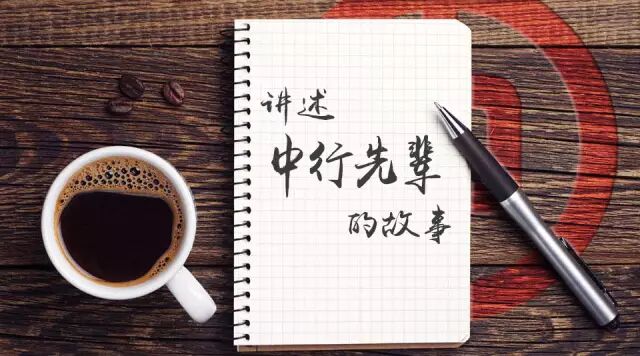 讲述
中行先辈
的故事